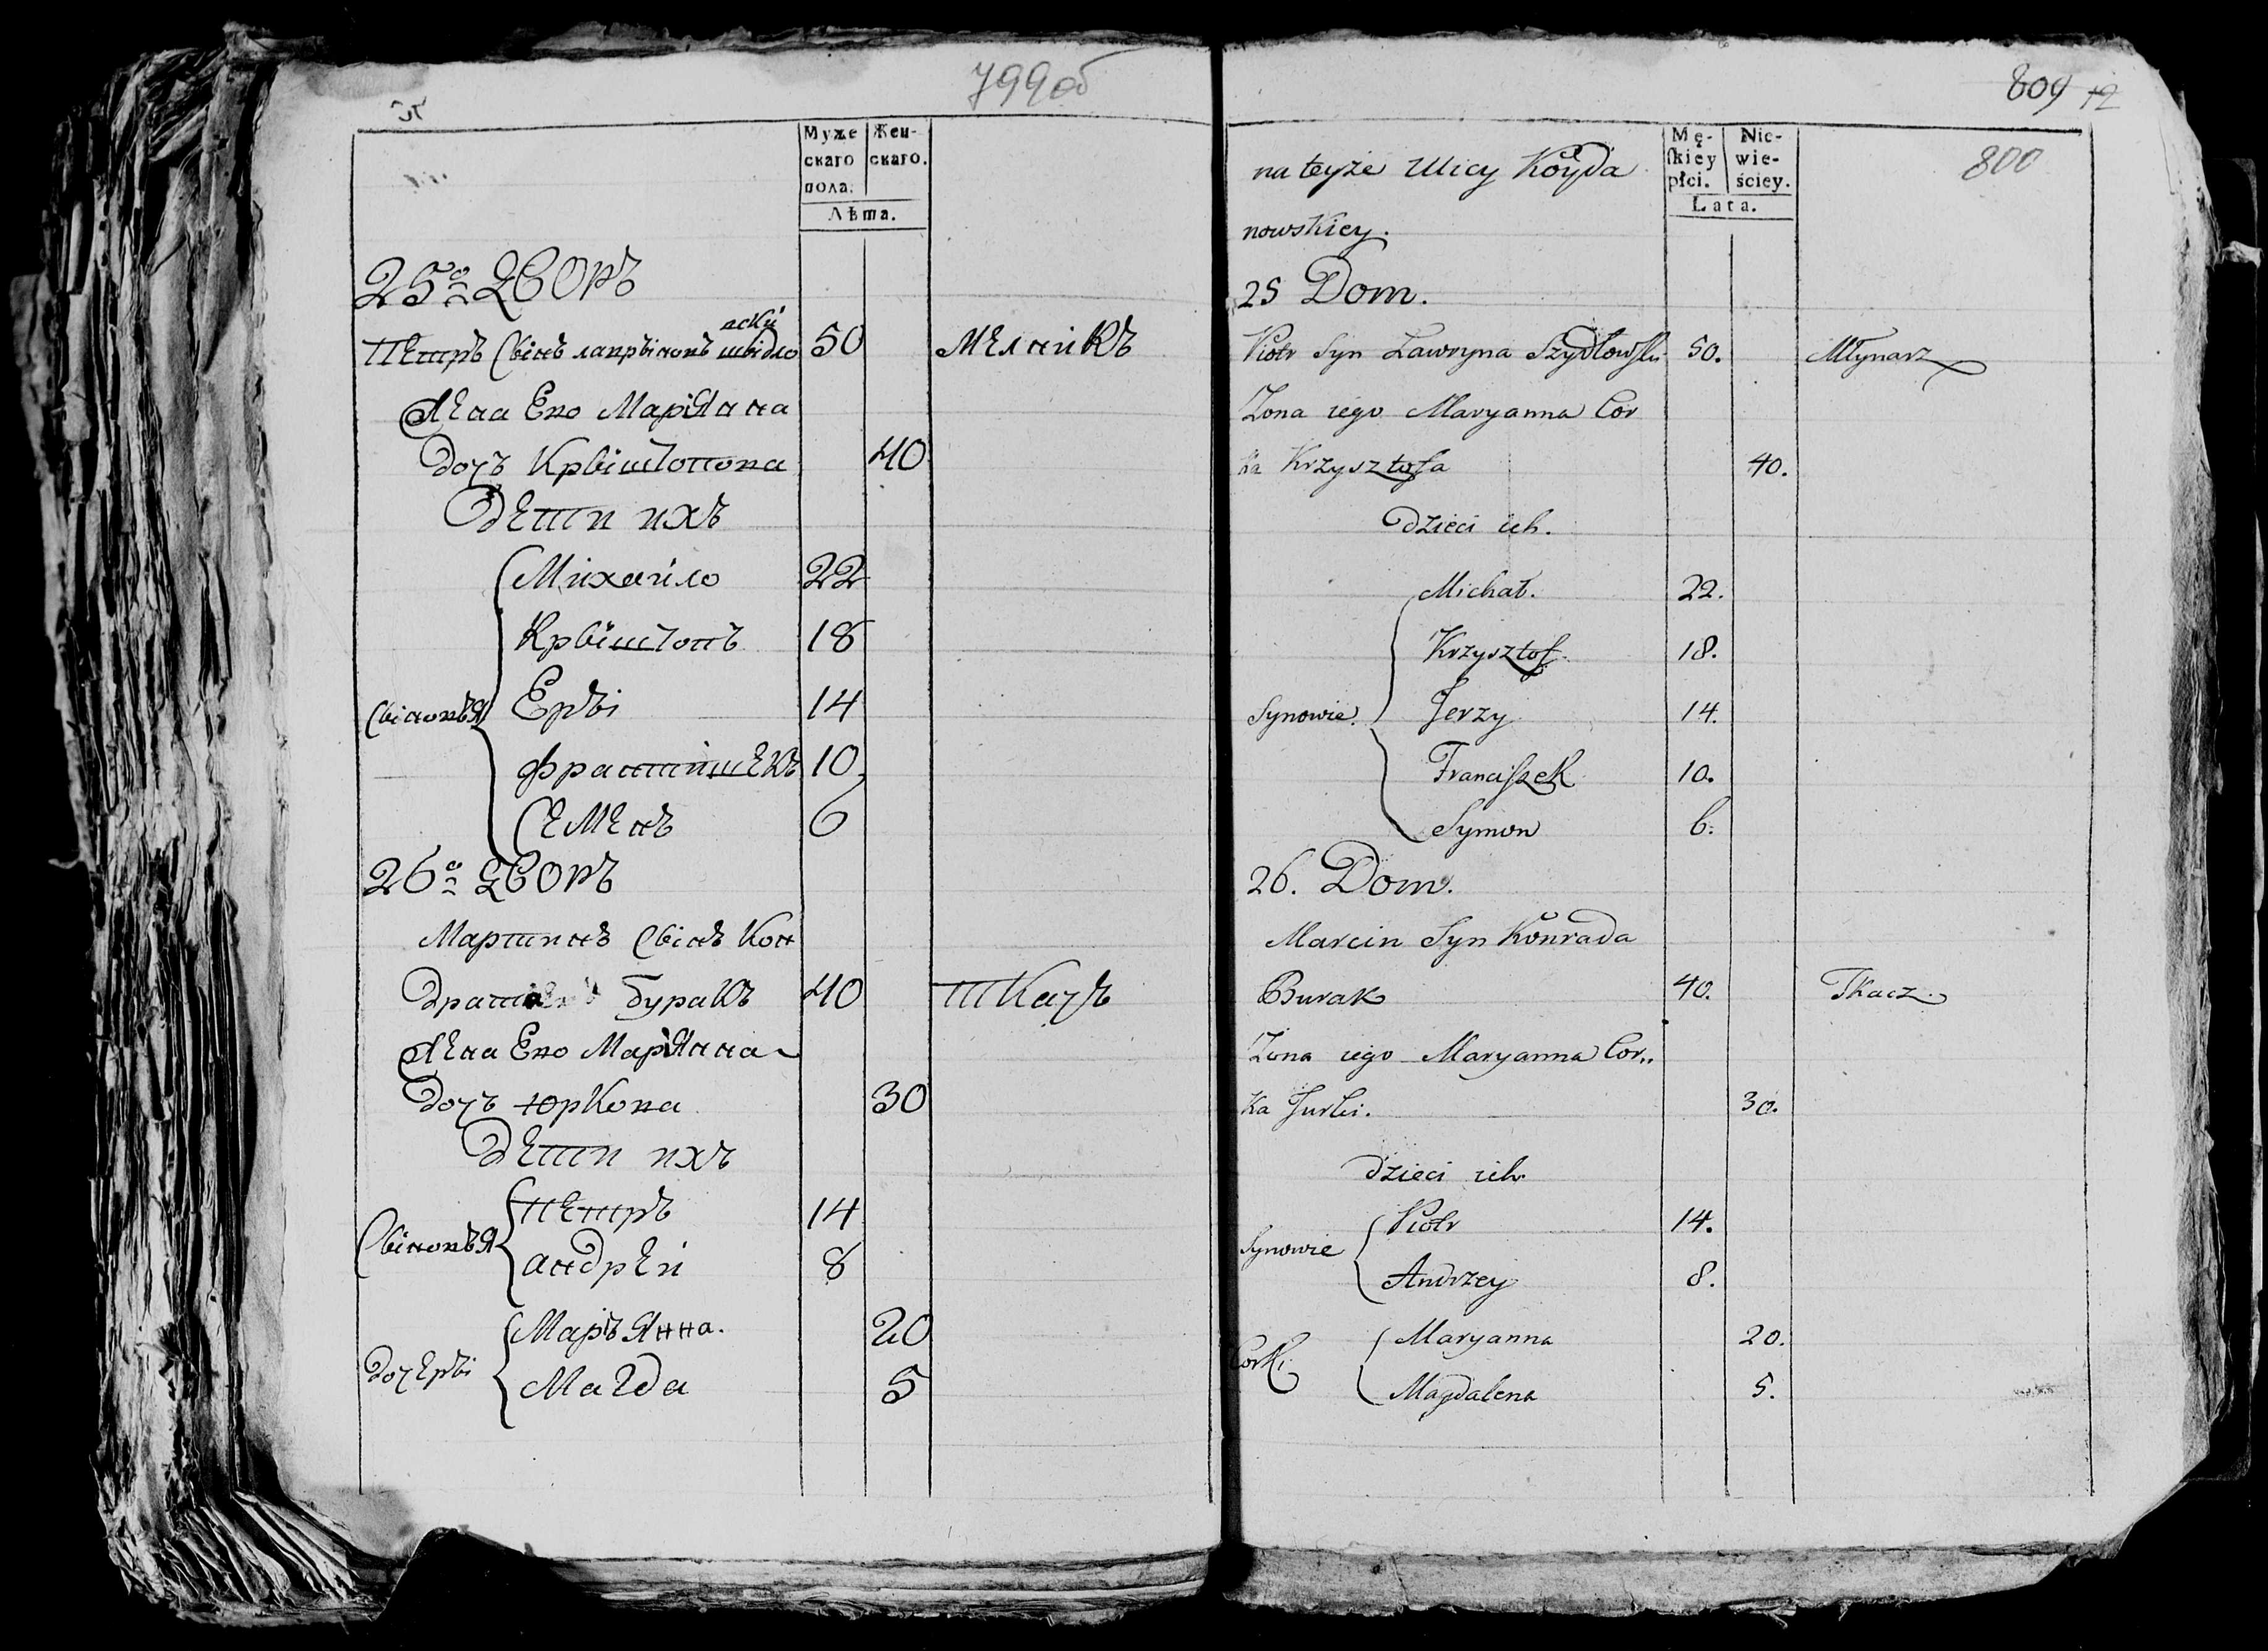 799об
Муже
скаго
пола.
Жен-
скаго.
Лѣта.
25о дворъ
Петръ Сынъ лаврыновъ шыдло
вскй
50
мелникъ
Жена Ево Маріянна
дочъ Крыштопова 40
дети ихъ
Михайло 22
Крыштопъ 18
Сыновья Еры 14
Францишекъ 10
Семенъ 6
26о дворъ
Мартинъ Сынъ Кон
драт буракъ 40 ткачъ
Жена Ево Маріянна
дочъ юркова 30
дети ихъ
Сыновья Петръ 14
андрей 8
дочеры Маръянна. 20
Магда 5
809 12
800
na teyże Ulicy Koyda
nowskiey.
Mę-
skiey
płci.
Nie-
wie-
ściey.
Lata.
25 Dom.
Piotr Syn Ławryna Szydłowski 50. Młynarz
Zona iego Maryanna Cor
ka Krzysztofa 40.
dzieci ich.
Michał. 22.
Krzysztof 18.
Synowie. Jerzy 14.
Franciszek 10.
Symon 6.
26. Dom.
Marcin Syn Konrada
Burak 40. Tkacz
Zona iego Maryanna Cor..
ka Jurki. 30.
dzieci ich
Synowie Piotr 14.
Andrzey 8.
Corki Maryanna 20.
Magdalena 5.